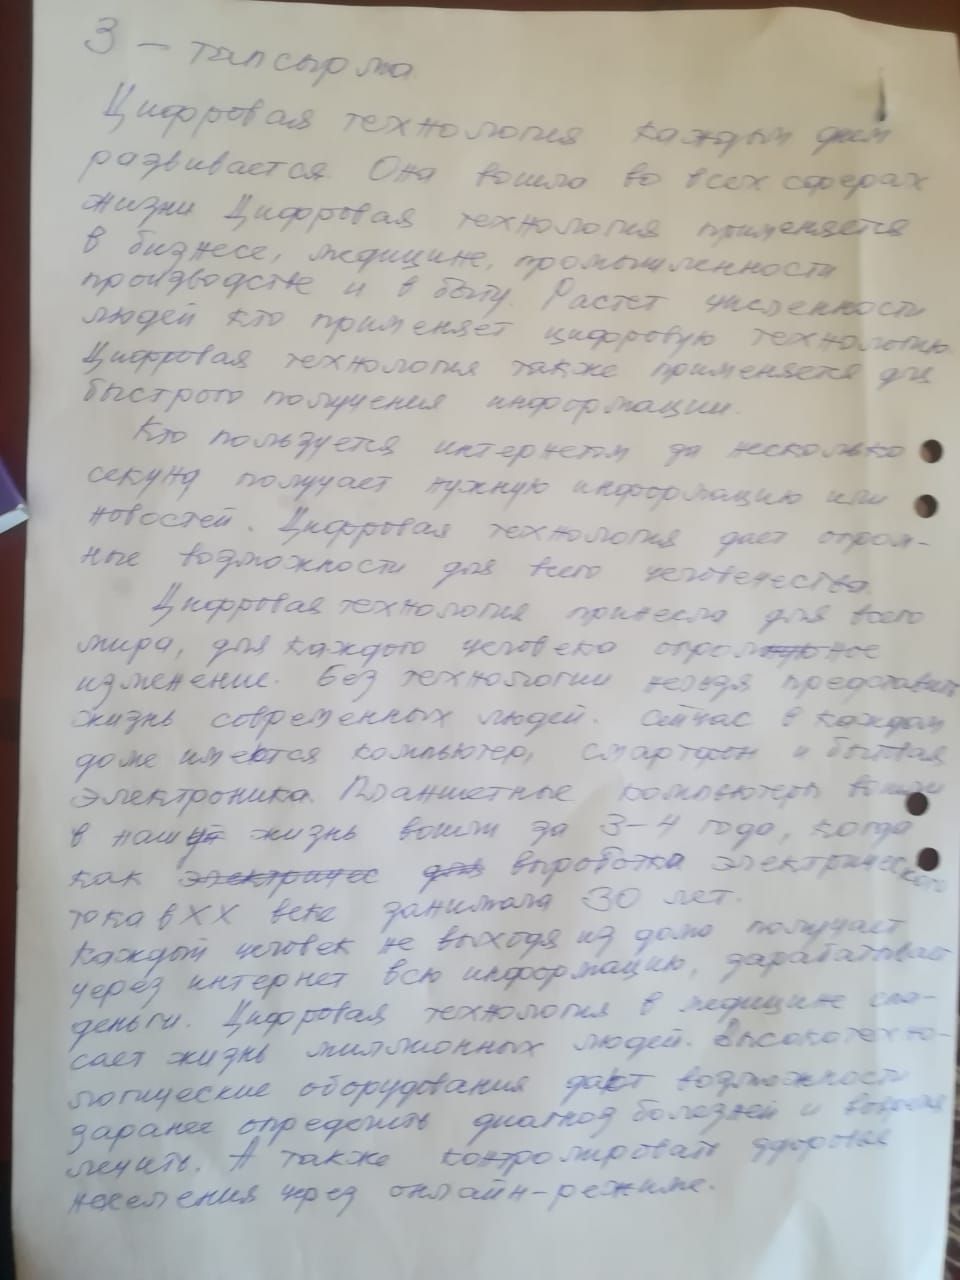 3 – тапсырма
Цифровая технология каждым днем
развивается. Она вошла во всех сферах
жизни Цифровая технология применяется
в бизнесе, медицине, промышленности
производстве и в быту. Растет численности
людей кто применяет цифровую технологию.
Цифровая технология также применяется для
быстрого получения информации.
Кто пользуется интернетом за несколько
секунд получает нужную информацию или
новостей. Цифровая технология дает огром-
ные возможности для всего человечества.
Цифровая технология принесла для всего
мира, для каждого человека огромное
изменение. Без технологии нельзя представить
жизнь современных людей. Сейчас в каждом
доме имеются компьютер, смартфон и бытовая
электроника. Планшетные компьютеры вошли
в нашу жизнь вошли за 3-4 года, когда
как электричес для выроботка электрического
тока в XX веке занимала 30 лет.
Каждый человек не выходя из дома получает
через интернет всю информацию, зарабатывает
деньги. Цифровая технология в медицине спа-
сает жизнь миллионных людей. Высокотехно-
логические оборудования дают возможности
заранее определить диагноз болезней и вовремя
лечить. А также контролировать здоровье
населения через онлайн-режиме.